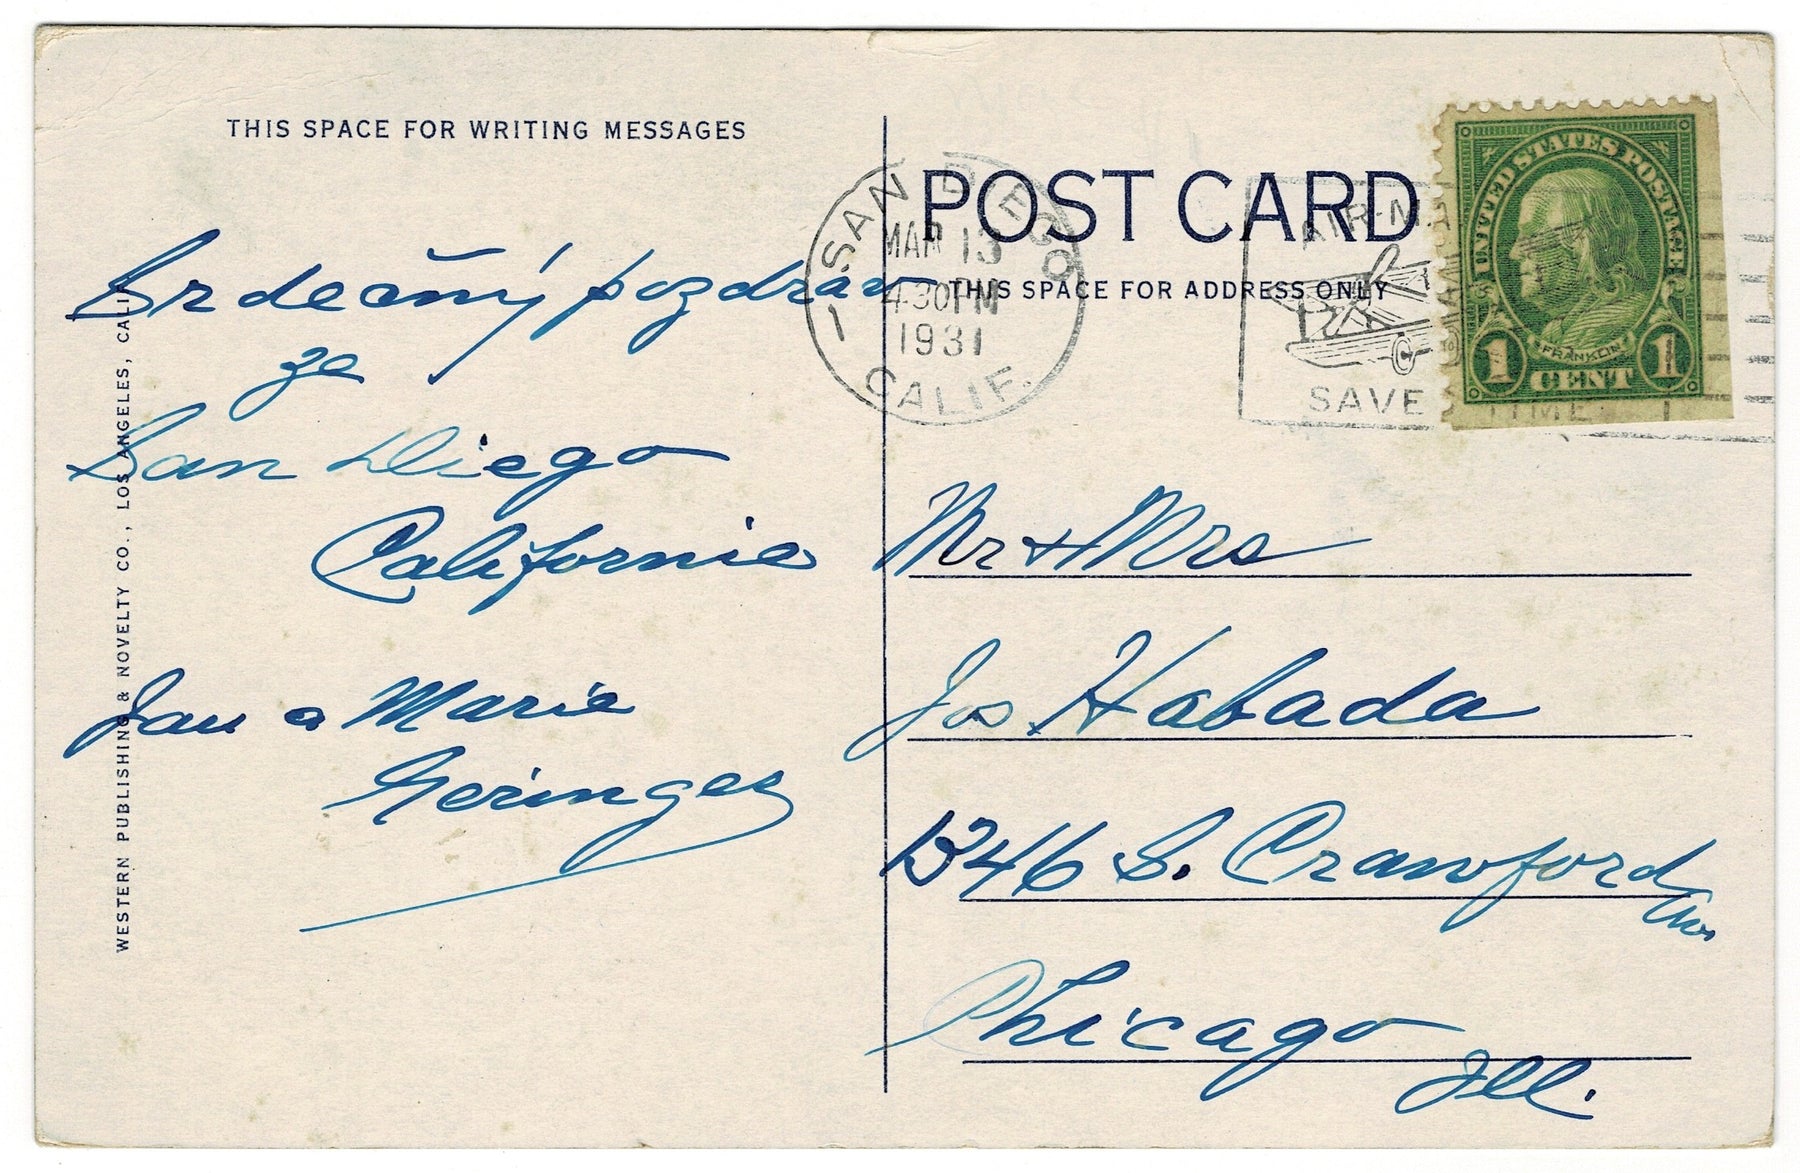 THIS SPACE FOR WRITING MESSAGES
Srdečný pozdrav
ze
San Diego
California
Jan a Marie
Geringer
WESTERN PUBLISHING & NOVELTY CO., LOS ANGELES, CALIF.
POST CARD
THIS SPACE FOR ADDRESS ONLY
SAN DIEGO
MAR 13
4-30 PM
1931
CALIF.
1
AIR-MA
SAVE TIME
UNITED STATES POSTAGE
FRANKLIN
1 CENT 1
Mr & Mrs
Jos Habada
1346 S. Crawford
Av.
Chicago
Ill.